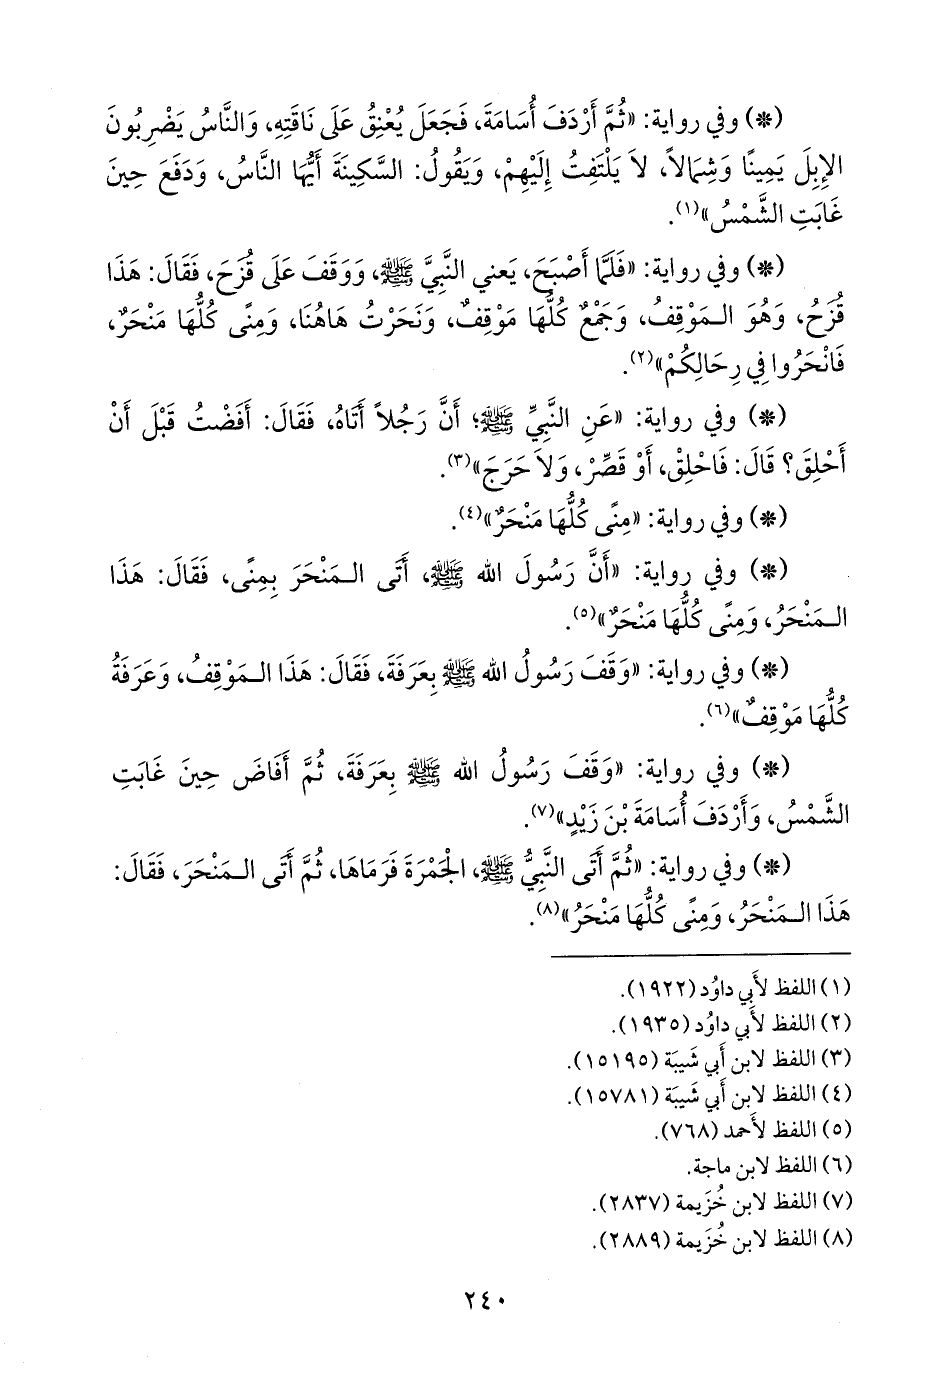 (*) وفي رواية: «ثُمَّ أَرْدَفَ أُسَامَةَ، فَجَعَلَ يُعْنِقُ عَلَى نَاقَتِهِ، وَالنَّاسُ يَضْرِبُونَ
الإِبِلَ يَمِينًا وَشِمَالاً، لاَ يَلْتَفِتُ إِلَيْهِمْ، وَيَقُولُ: السَّكِينَةَ أَيُّهَا النَّاسُ، وَدَفَعَ حِينَ
غَابَتِ الشَّمْسُ»(١).
(*) وفي رواية: «فَلَمَّا أَصْبَحَ، يَعني النَّبِيَّ ﷺ، وَوَقَفَ عَلَى قُزَحَ، فَقَالَ: هَذَا
قُزَحُ، وَهُوَ الـمَوْقِفُ، وَجَمْعٌ كُلُّهَا مَوْقِفٌ، وَنَحَرْتُ هَاهُنَا، وَمِنًى كُلُّهَا مَنْحَرٌ،
فَانْحَرُوا فِي رِحَالِكُمْ»(٢).
(*) وفي رواية: «عَنِ النَّبِيِّ ﷺ؛ أَنَّ رَجُلاً أَتَاهُ، فَقَالَ: أَفَضْتُ قَبْلَ أَنْ
أَحْلِقَ؟ قَالَ: فَاحْلِقْ، أَوْ قَصِّرْ، وَلاَ حَرَجَ»(٣).
(*) وفي رواية: «مِنًى كُلُّهَا مَنْحَرٌ»(٤).
(*) وفي رواية: «أَنَّ رَسُولَ الله ﷺ، أَتَى الـمَنْحَرَ بِمِنًى، فَقَالَ: هَذَا
الـمَنْحَرُ، وَمِنًى كُلُّهَا مَنْحَرٌ»(٥).
(*) وفي رواية: «وَقَفَ رَسُولُ الله ﷺ بِعَرَفَةَ، فَقَالَ: هَذَا الـمَوْقِفُ، وَعَرَفَةُ
كُلُّهَا مَوْقِفٌ»(٦).
(*) وفي رواية: «وَقَفَ رَسُولُ الله ﷺ بِعَرَفَةَ، ثُمَّ أَفَاضَ حِينَ غَابَتِ
الشَّمْسُ، وَأَرْدَفَ أُسَامَةَ بْنَ زَيْدٍ»(٧).
(*) وفي رواية: «ثُمَّ أَتَى النَّبِيُّ ﷺ، الجَمْرَةَ فَرَمَاهَا، ثُمَّ أَتَى الـمَنْحَرَ، فَقَالَ:
هَذَا الـمَنْحَرُ، وَمِنًى كُلُّهَا مَنْحَرُ»(٨).
(١) اللفظ لأَبي داوُد (١٩٢٢).
(٢) اللفظ لأَبي داوُد (١٩٣٥).
(٣) اللفظ لابن أَبي شَيبَة (١٥١٩٥).
(٤) اللفظ لابن أَبي شَيبَة (١٥٧٨١).
(٥) اللفظ لأَحمد (٧٦٨).
(٦) اللفظ لابن ماجة.
(٧) اللفظ لابن خُزَيمة (٢٨٣٧).
(٨) اللفظ لابن خُزَيمة (٢٨٨٩).
٢٤٠